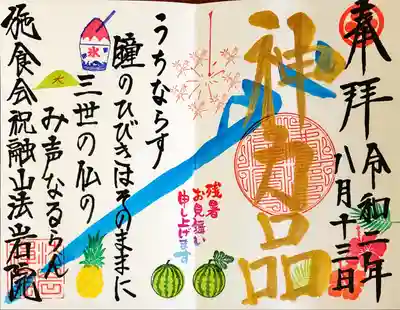 奉拝
令和二年
八月十三日
神力品
残暑
お見舞い
申し上げます
氷
うちならす
のひびきはそのままに
三世の仏の
み声なるらん
施食会祝融山法岩院